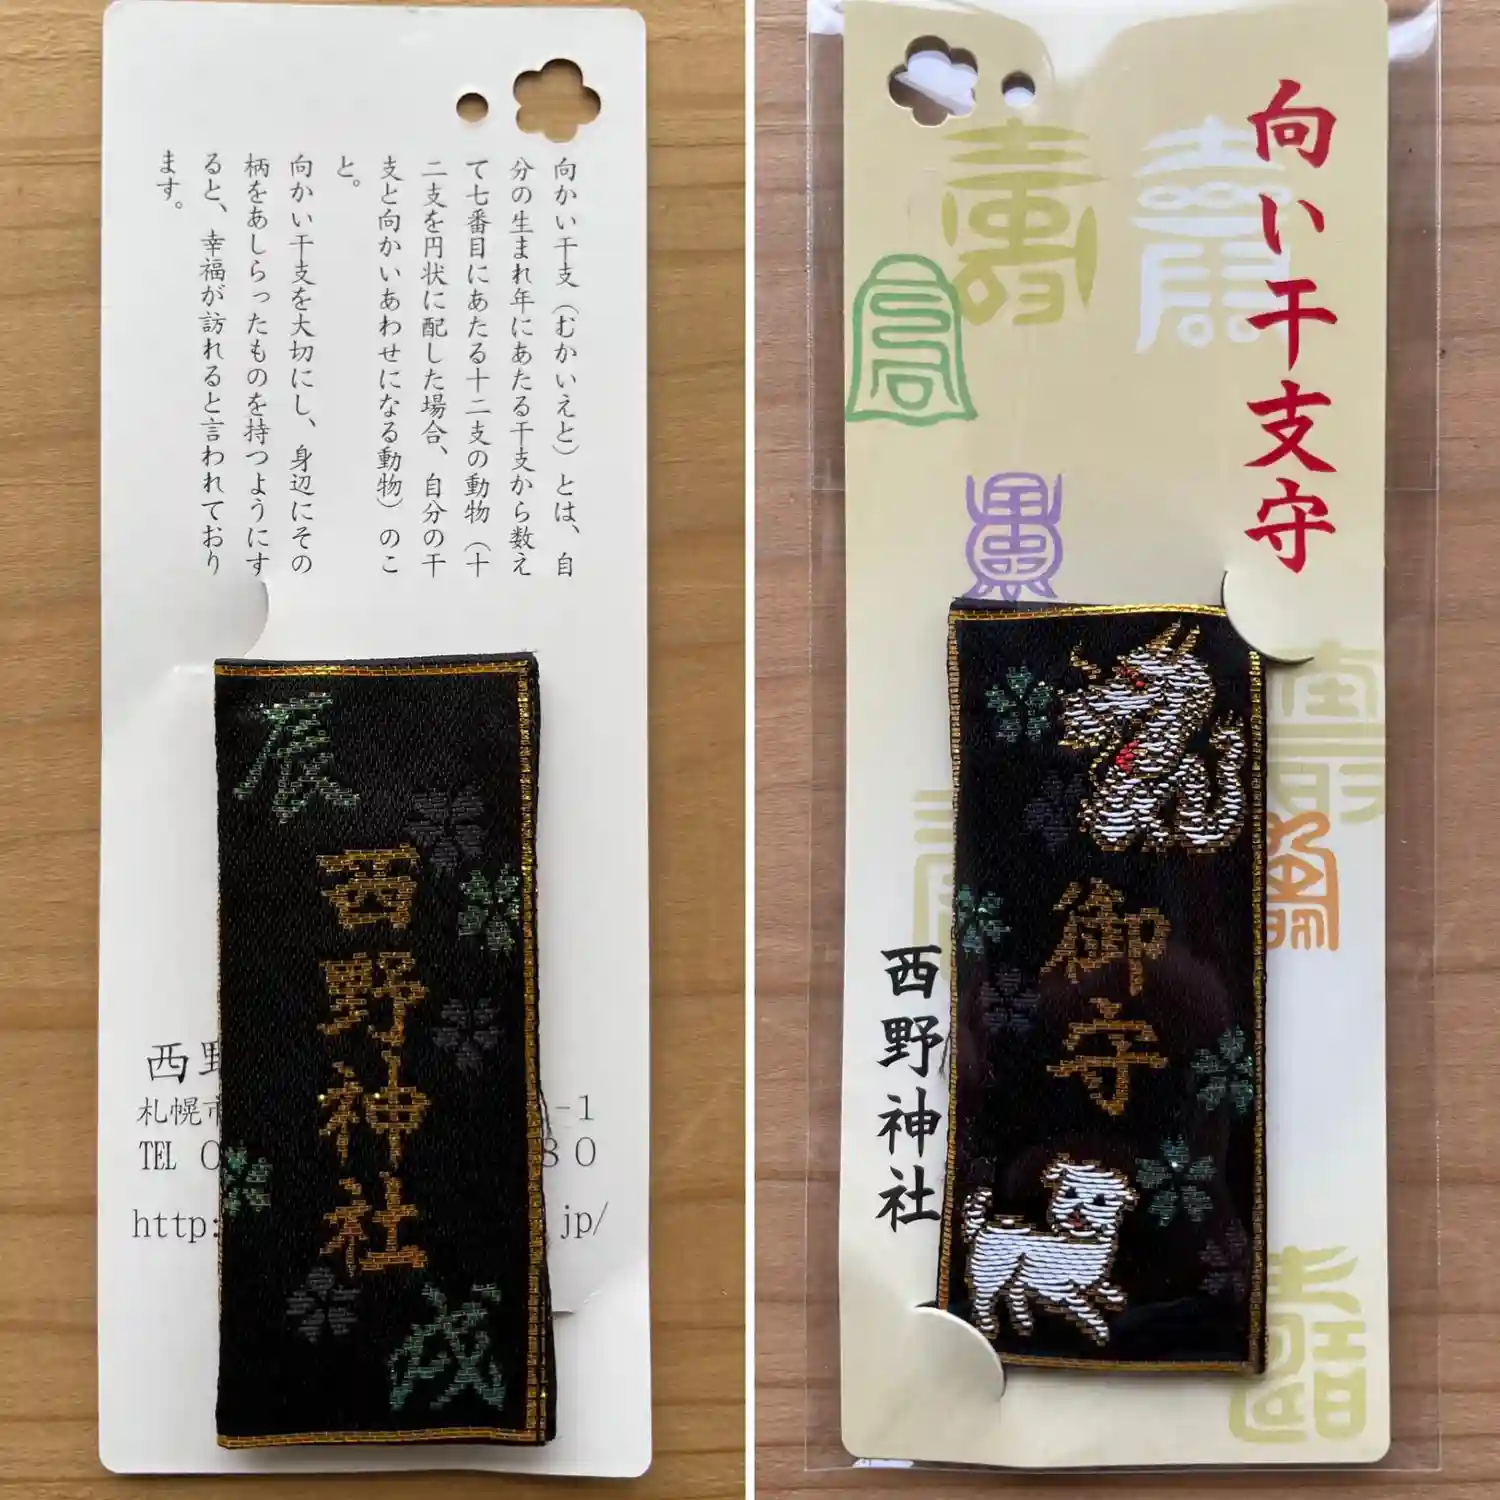 向かい干支（むかいえと）とは、自
分の生まれ年にあたる干支から数え
て七番目にあたる十二支の動物（十
二支を円状に配した場合、自分の干
支と向かいあわせになる動物）のこ
と。
向かい干支を大切にし、身辺にその
柄をあしらったものを持つようにす
ると、幸福が訪れると言われており
ます。
辰
西野神社
戌
西野
札幌市
-1
TEL 0
80
http:
jp/
向い干支守
御守
西野神社